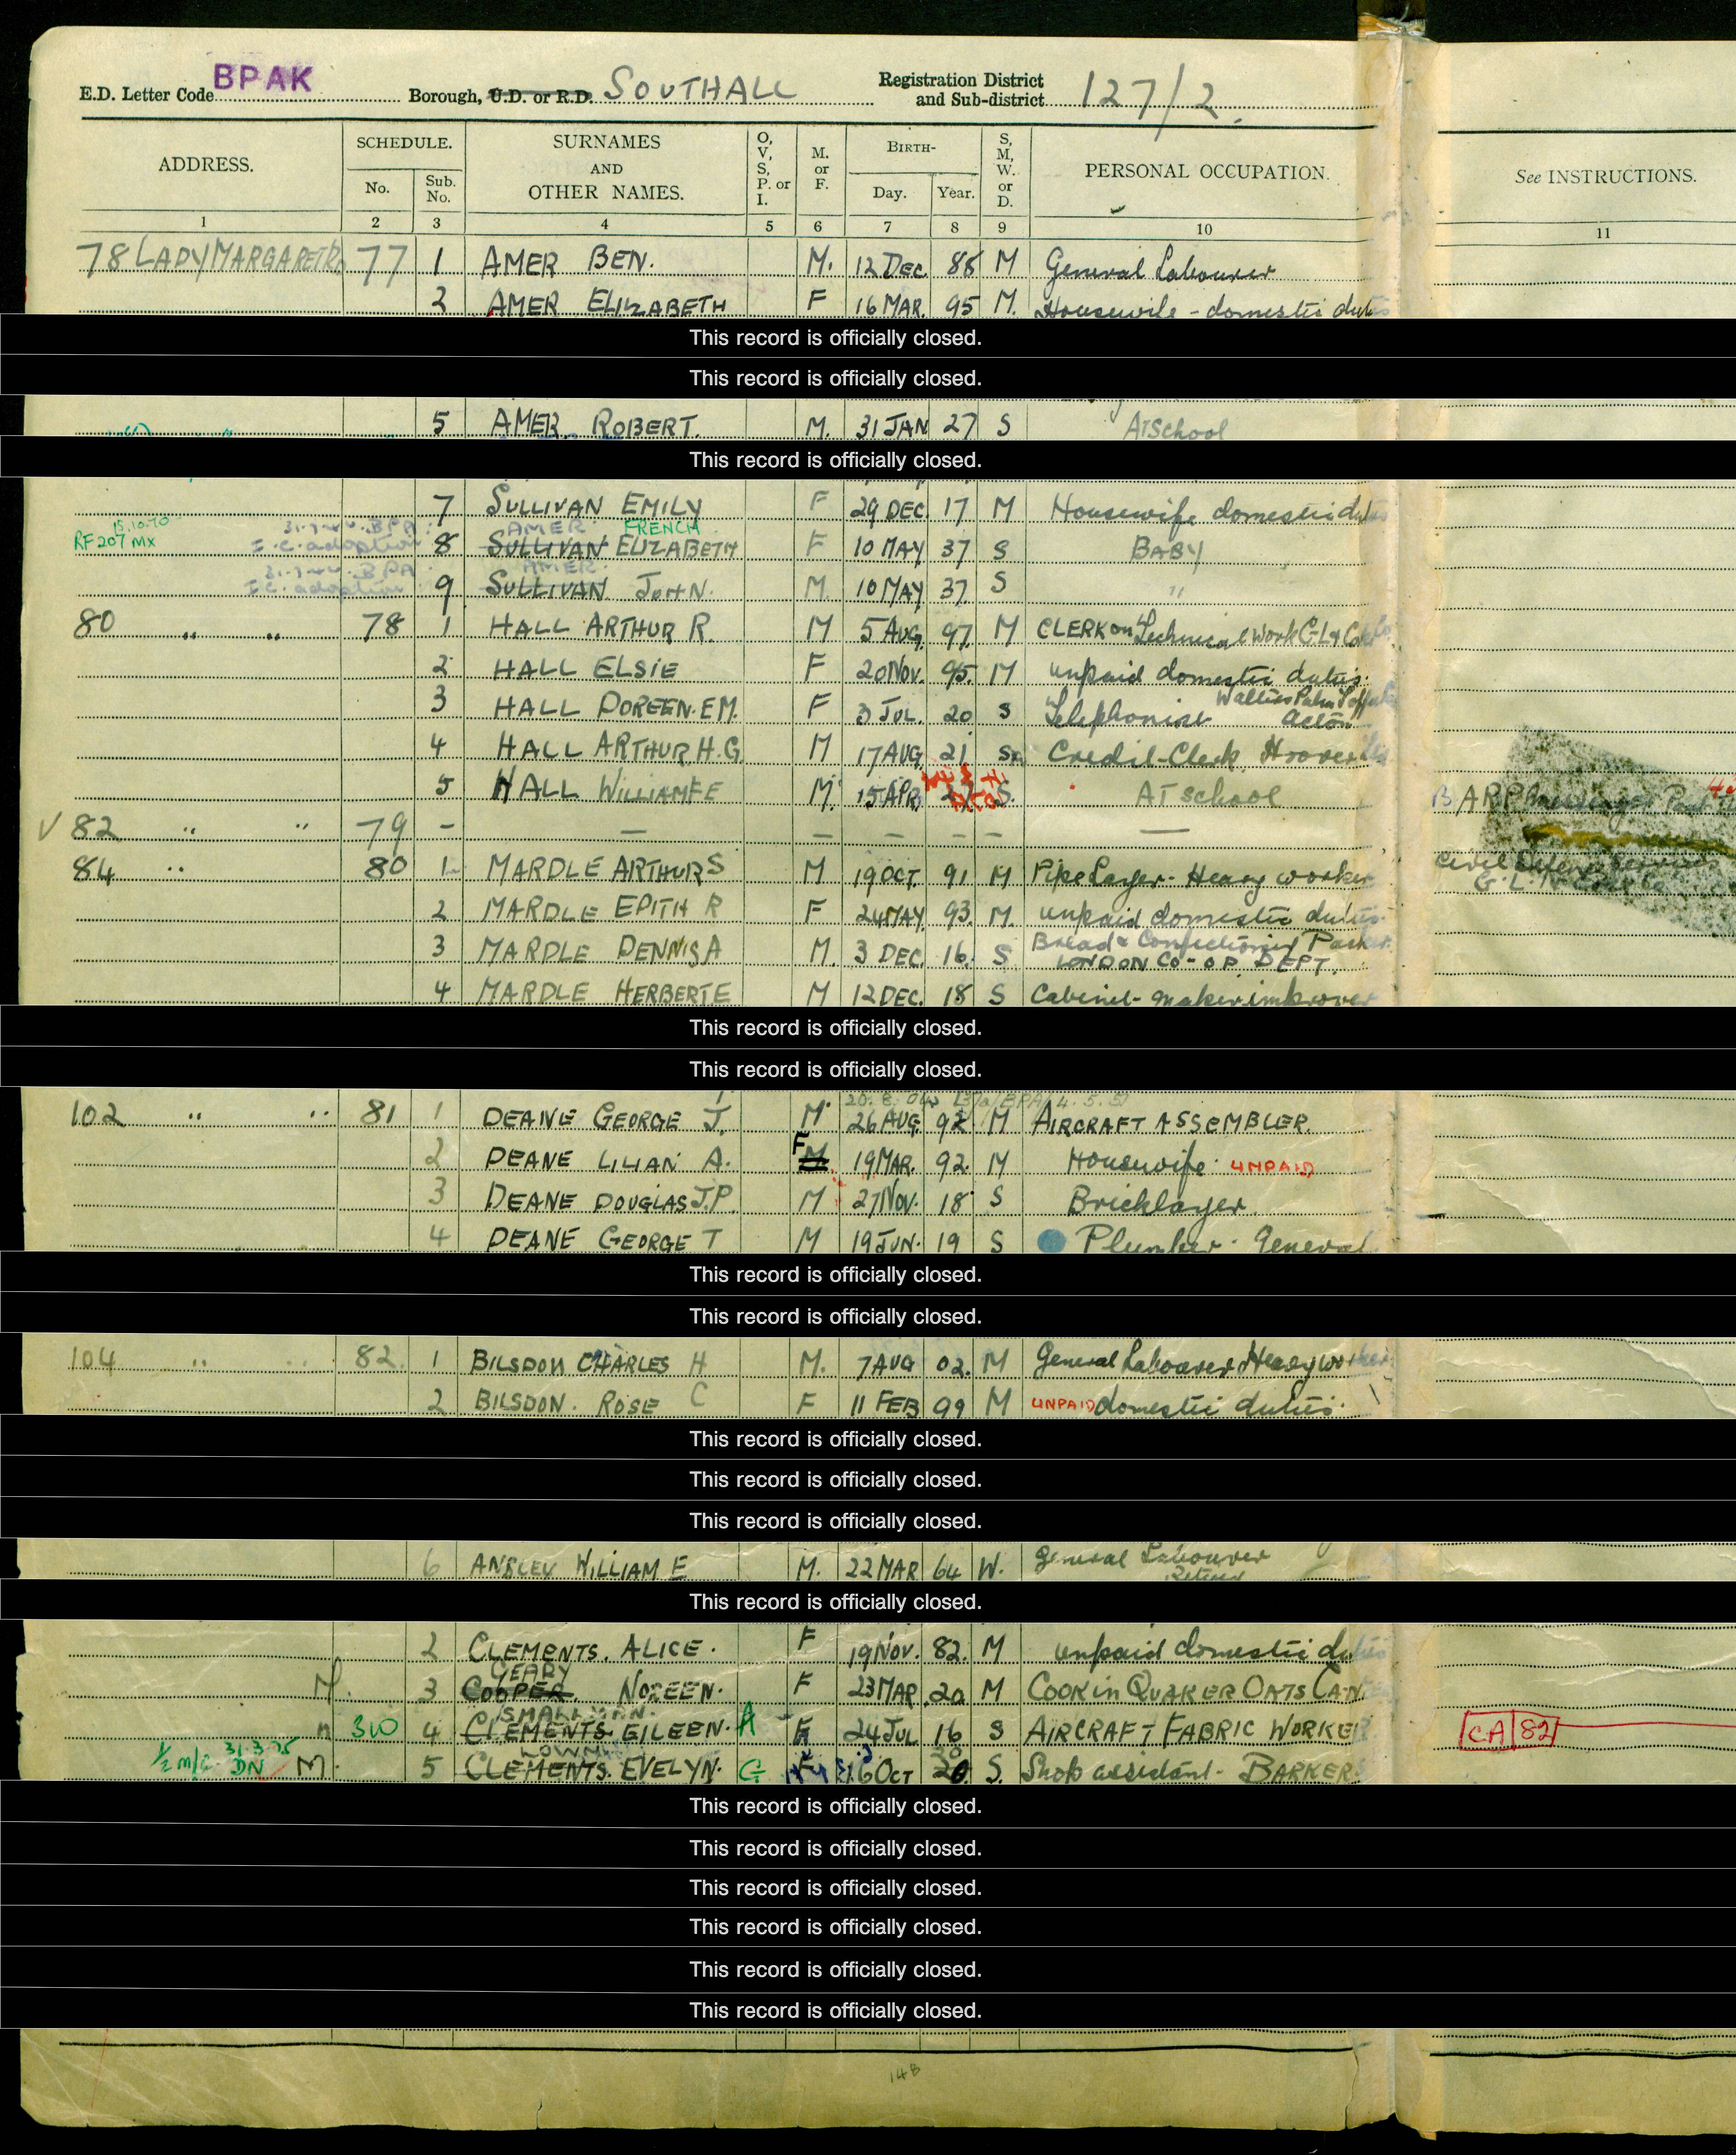 E.D. Letter Code BPAK Borough, U.D. or R.D. SOUTHALL Registration District and Sub-district 127/2
ADDRESS. SCHEDULE. No. Sub. No. SURNAMES AND OTHER NAMES. O, V, S, P. or I. M. or F. BIRTH- Day. Year. S, M, W. or D. PERSONAL OCCUPATION. See INSTRUCTIONS.
1 2 3 4 5 6 7 8 9 10 11
78 LADY MARGARET RD 77 1 AMER BEN. M. 12 DEC. 88 M General Labourer
2 AMER ELIZABETH F 16 MAR. 95 M. Housewife - domestic
This record is officially closed.
This record is officially closed.
5 AMER ROBERT. M. 31 JAN 27 S AT School
This record is officially closed.
7 SULLIVAN EMILY F 29 DEC. 17 M Housewife domestic
15.10.70 31.7.44. BPA AMER FRENCH
RF 207 MX I.C. adoption 8 SULLIVAN ELIZABETH F 10 MAY 37 S BABY
31.7.44. BPA AMER.
I.C. adoption 9 SULLIVAN JOHN. M. 10 MAY 37 S "
80 " " 78 1 HALL ARTHUR R. M 5 AUG. 97 M CLERK on Technical Work
2 HALL ELSIE F 20 NOV. 95. M unpaid domestic duties.
3 HALL DOREEN. E M. F 3 JUL. 20 S Telephonist Acton
4 HALL ARTHUR H. G M 17 AUG 21 S Credit-Clerk, Hoover
5 HALL WILLIAM F E M. 15 APR S. AT school ARP Messenger Post
✓ 82 " " 79 - — — — — — —
Civil Defence Services
84 " 80 1 MARDLE ARTHUR S M 19 OCT. 91 M Pipe Layer - Heavy worker
2 MARDLE EDITH R F 24 MAY 93. M. unpaid domestic duties.
3 MARDLE DENNIS A M. 3 DEC. 16. S Bread & Confectionery Packer
LONDON CO-OP. DEPT.
4 MARDLE HERBERT E M 12 DEC. 18 S Cabinet-maker improver
This record is officially closed.
This record is officially closed.
BPA 4.5.51
102 " " 81 1 DEANE GEORGE J. M. 26 AUG 92 M AIRCRAFT ASSEMBLER.
2 DEANE LILIAN A. F M 19 MAR. 92. M Housewife. UNPAID
3 DEANE DOUGLAS J.P. M 27 NOV. 18 S Bricklayer
4 DEANE GEORGE T M 19 JUN. 19 S Plumber. General
This record is officially closed.
This record is officially closed.
104 " " 82. 1 BILSDON CHARLES H M. 7 AUG 02. M General Labourer Heavy worker
2 BILSDON. ROSE C F 11 FEB 99 M UNPAID domestic duties.
This record is officially closed.
This record is officially closed.
This record is officially closed.
6 ANSLEY WILLIAM E M. 22 MAR 64 W. General Labourer
Retired
This record is officially closed.
2 CLEMENTS. ALICE. F 19 NOV. 82. M unpaid domestic
GEARY
M. 3 COOPER. NOREEN. F 23 MAR 20. M COOK in QUAKER OATS CAN
SMALLMAN.
310 4 CLEMENTS EILEEN. A F 24 JUL 16 S AIRCRAFT FABRIC WORKER CA 82
31.3.75
DN M. 5 CLEMENTS. EVELYN. G F 16 OCT 20 S. Shop assistant - BARKERS
This record is officially closed.
This record is officially closed.
This record is officially closed.
This record is officially closed.
This record is officially closed.
This record is officially closed.
14B